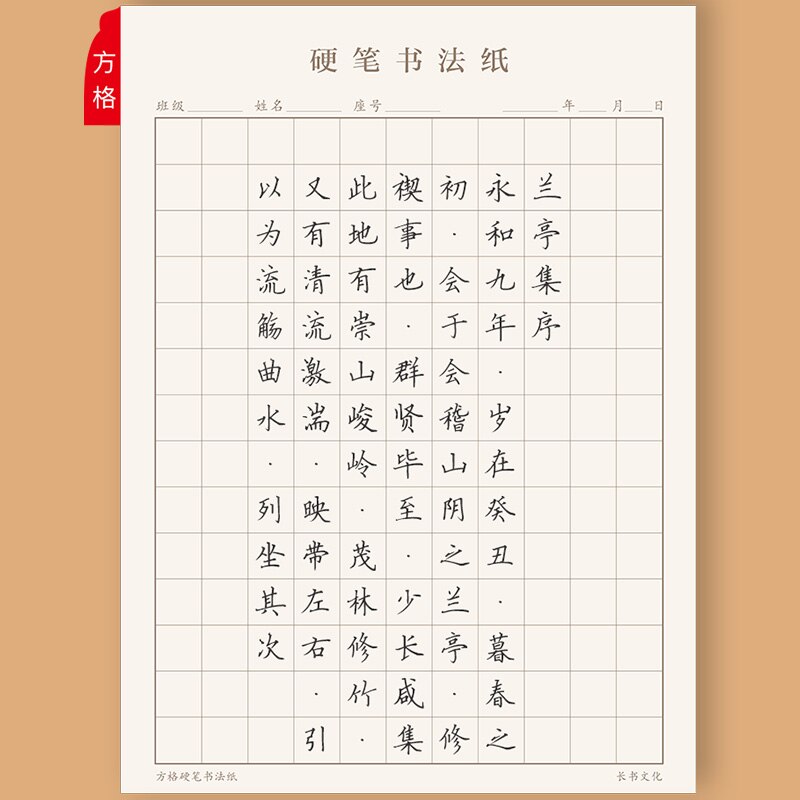 方格
硬笔书法纸
班级______ 姓名______ 座号______ ______年___月___日
兰亭集序
永和九年·岁在癸丑·暮春之
初·会于会稽山阴之兰亭·修
禊事也·群贤毕至·少长咸集
此地有崇山峻岭·茂林修竹·
又有清流激湍·映带左右·引
以为流觞曲水·列坐其次
方格硬笔书法纸
长书文化